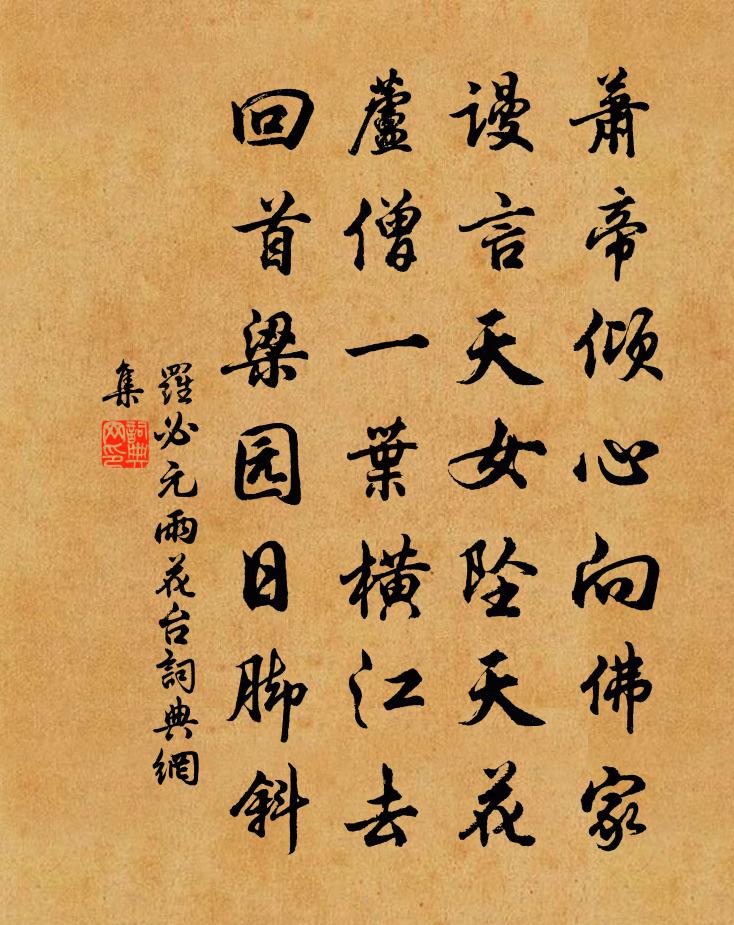 萧帝倾心向佛家
谩言天女坠天花
蘆僧一葉横江去
回首梁园日脚斜
羅必元雨花台詞典網
集
詞典
网印